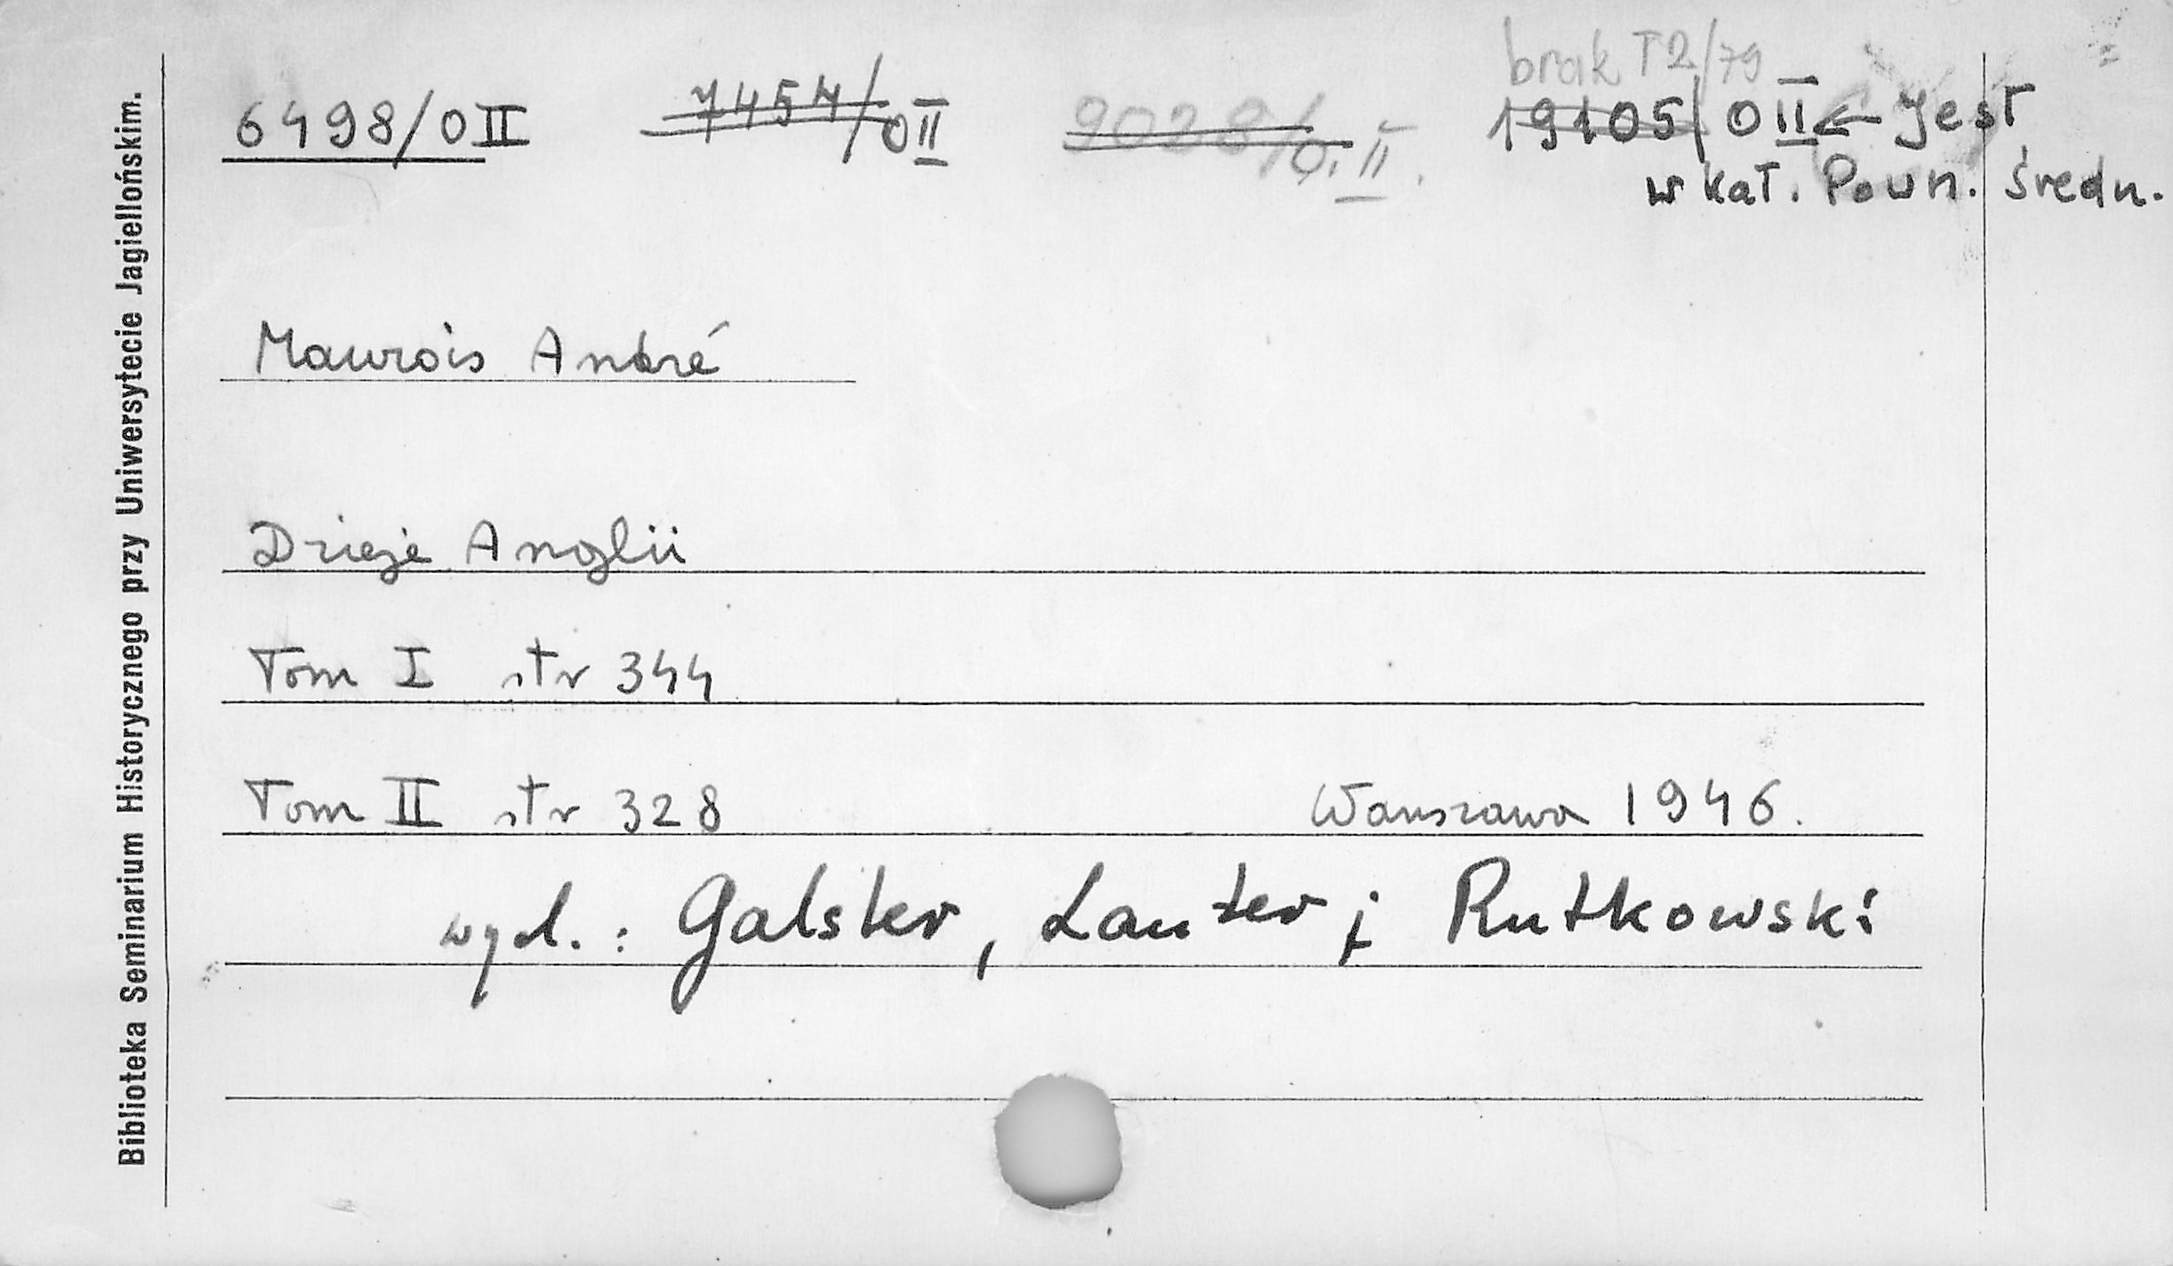 brak T2/79
6498/0II 7454/0II 9028/0.II. 19105/0II ← Jest
w kat. Pown. średn.
Maurois André
Dzieje Anglii
Tom I str 344
Tom II str 328 Warszawa 1946.
wyd.: Galster, Lauter i Rutkowski
Biblioteka Seminarium Historycznego przy Uniwersytecie Jagiellońskim.